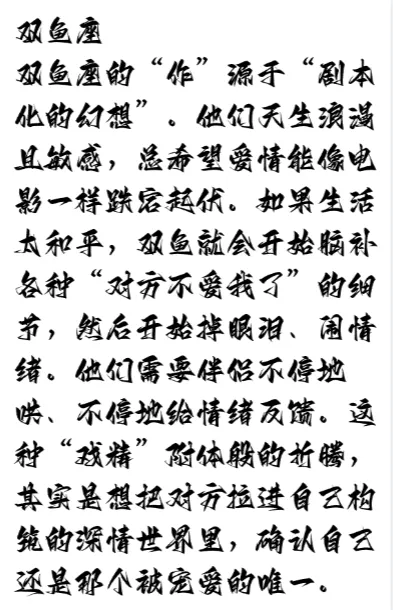 双鱼座
双鱼座的“作”源于“剧本
化的幻想”。他们天生浪漫
且敏感，总希望爱情能像电
影一样跌宕起伏。如果生活
太和平，双鱼就会开始脑补
各种“对方不爱我了”的细
节，然后开始掉眼泪、闹情
绪。他们需要伴侣不停地
哄、不停地给情绪反馈。这
种“戏精”附体般的折腾，
其实是想把对方拉进自己构
筑的深情世界里，确认自己
还是那个被宠爱的唯一。